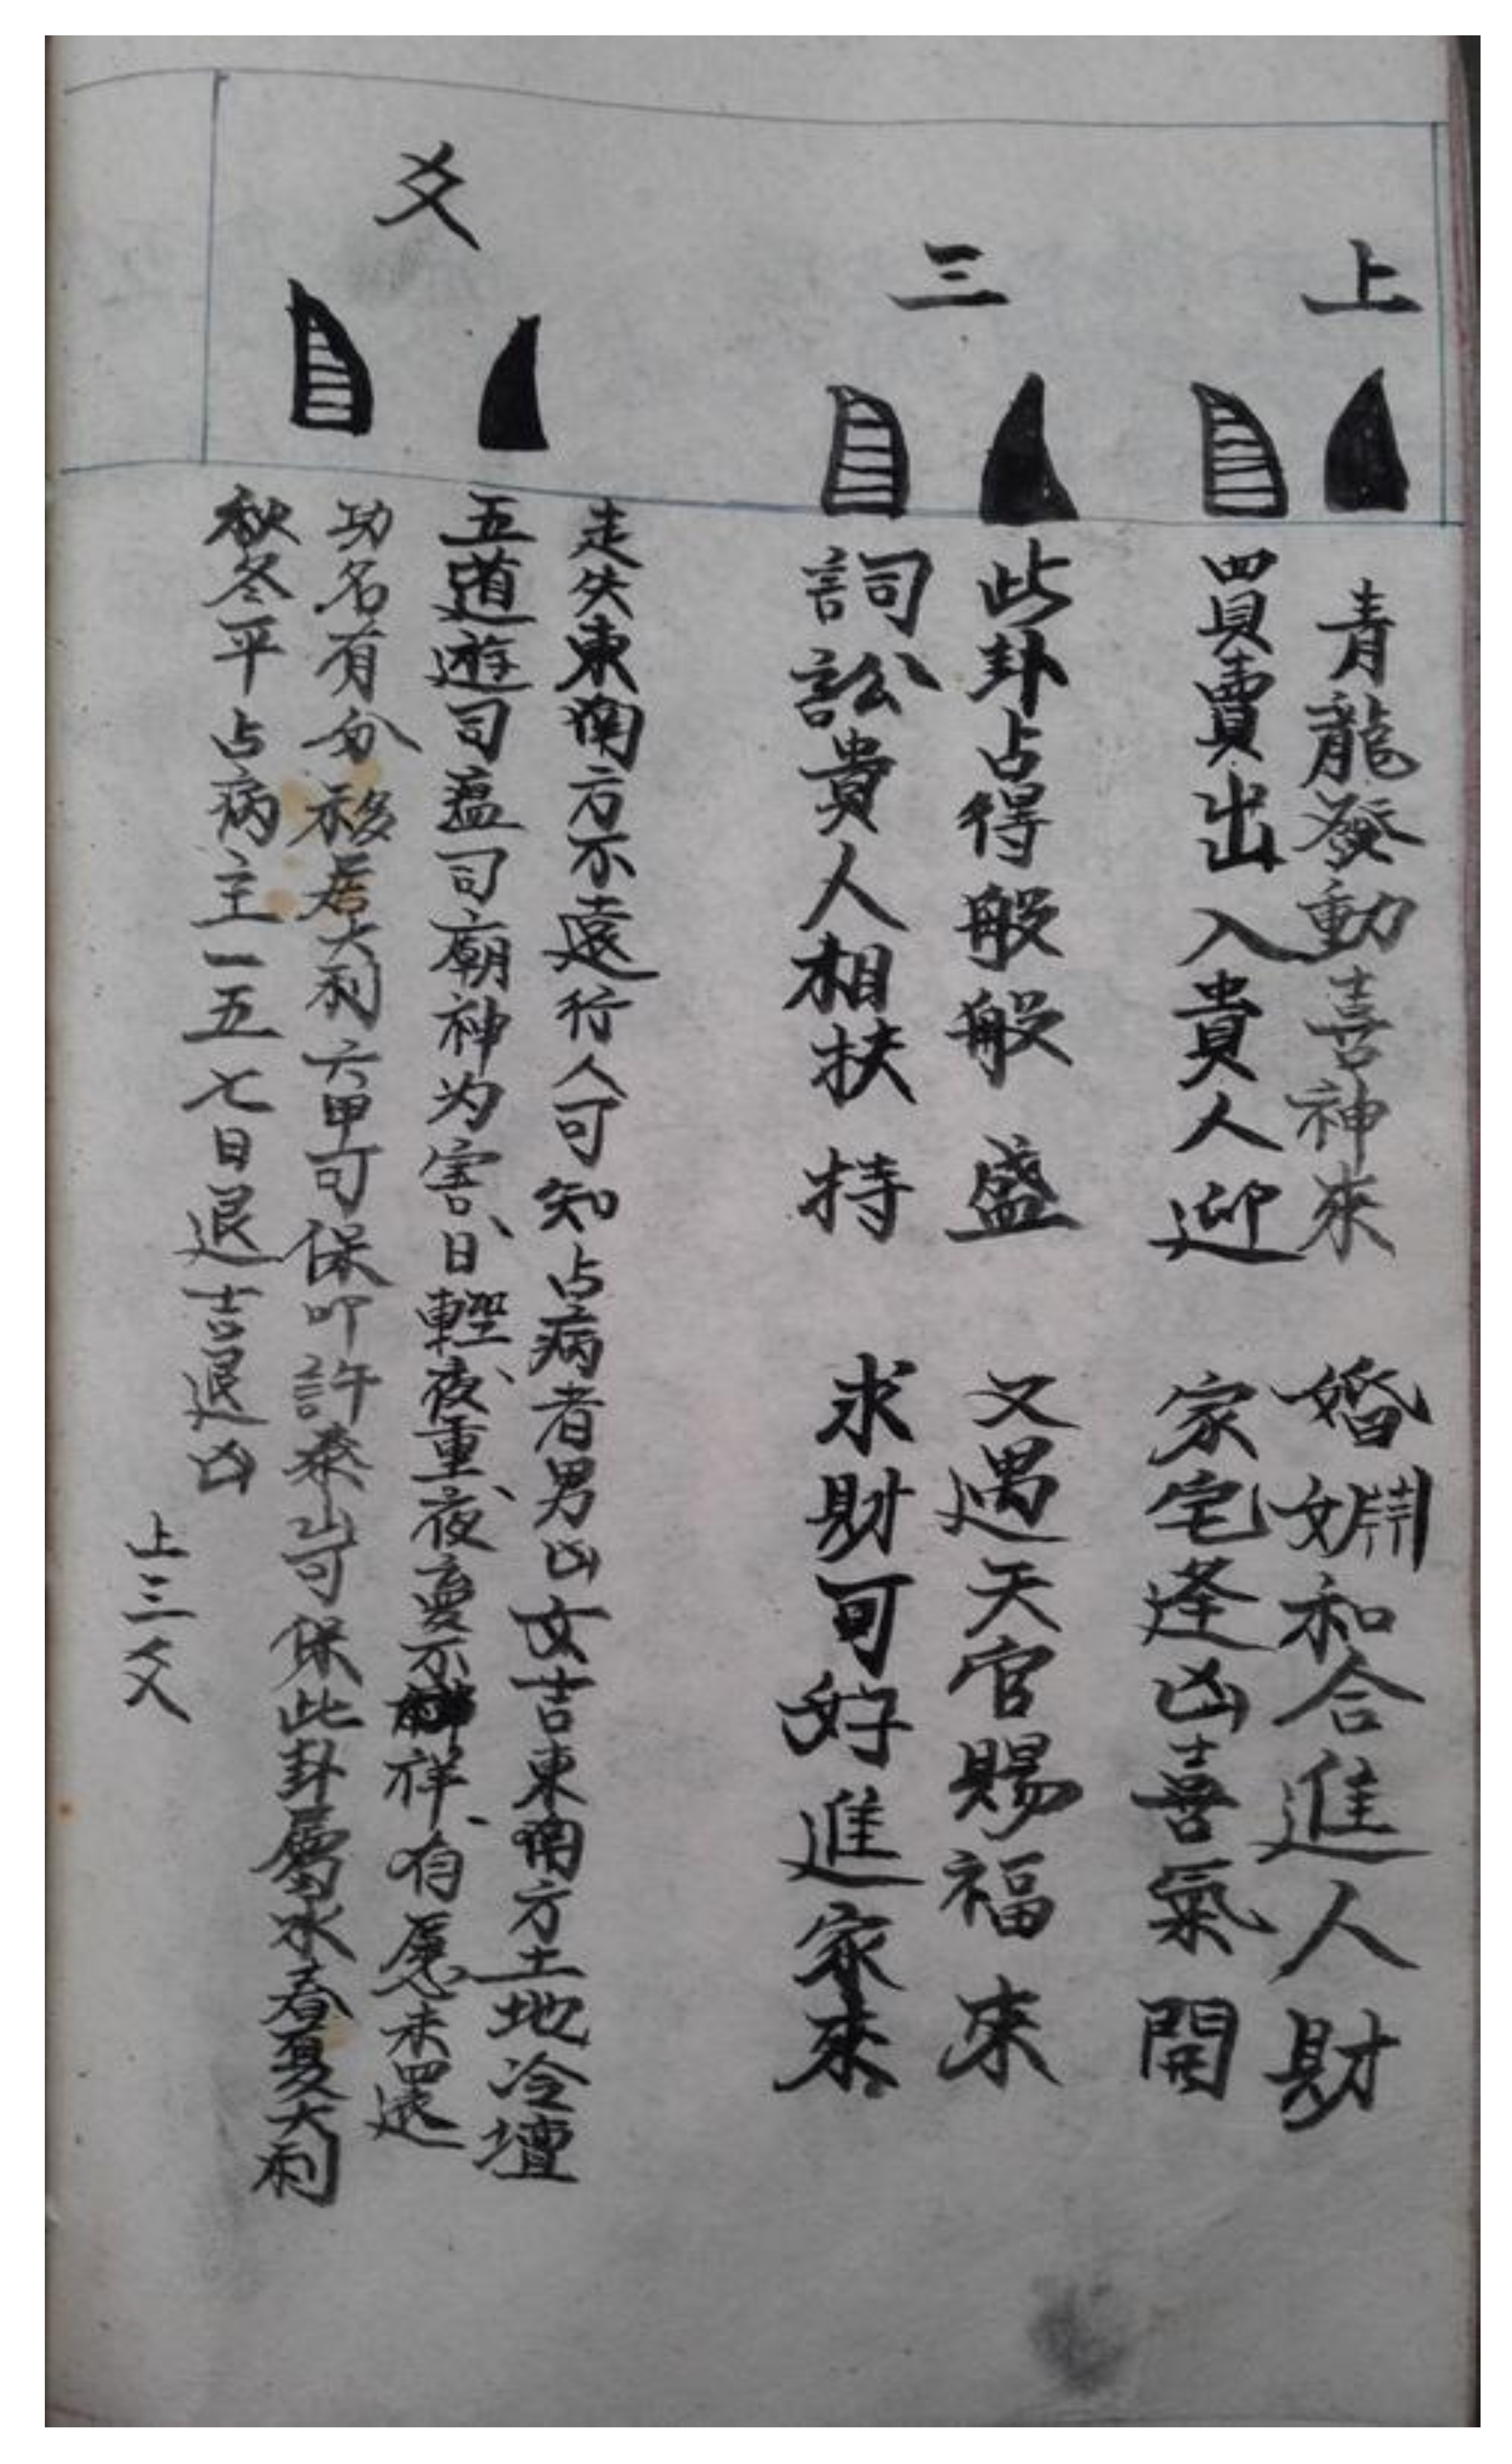 上三爻
青龍發動喜神來　婚姻和合進人財
買賣出入貴人迎　家宅逢凶喜氣開
此卦占得般般盛　又遇天官賜福來
詞訟貴人相扶持　求財可好進家來
走失東南方不遠行人可知占病者男凶女吉東南方土地冷壇
五道遊司瘟司廟神为害、日輕、夜重、夜夢不祥、有愿未還
功名有分移居大利六甲可保叩許泰山可保此卦屬水春夏大利
秋冬平占病主一五七日退吉退凶
上三爻